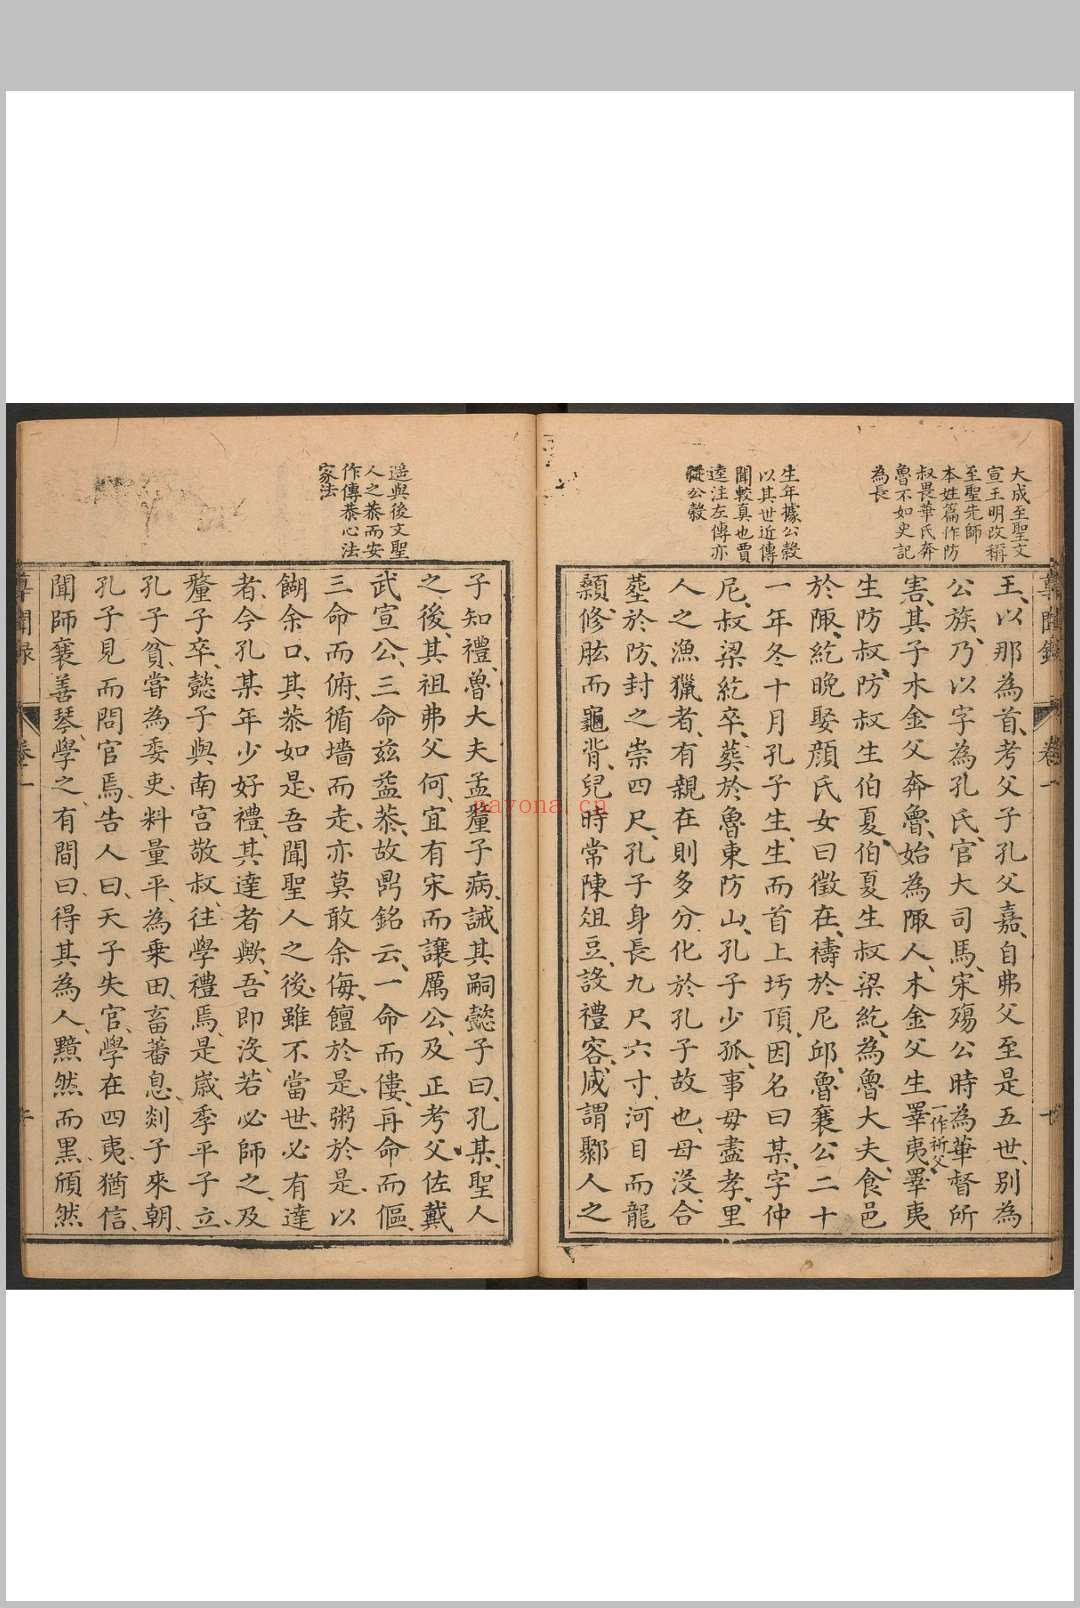 大成至聖文
宣王明改稱
至聖先師
本姓篇作防
叔畏華氏奔
魯不如史記
為長
生年據公穀
以其世近傳
聞較真也賈
逵注左傳亦
從公穀
王、以那為首、考父子孔父嘉、自弗父至是五世、別為
公族、乃以字為孔氏、官大司馬、宋殤公時為華督所
害、其子木金父奔魯、始為陬人、木金父生睪夷、睪夷
一作祈父
生防叔、防叔生伯夏、伯夏生叔梁紇、為魯大夫、食邑
於陬、紇晚娶顏氏女曰徵在、禱於尼邱、魯襄公二十
一年冬十月孔子生、生而首上圬頂、因名曰某、字仲
尼、叔梁紇卒、葬於魯東防山、孔子少孤、事母盡孝、里
人之漁獵者、有親在則多分化於孔子故也、母沒、合
塟於防、封之崇四尺、孔子身長九尺六寸、河目而龍
顙、修肱而龜背、兒時常陳俎豆、設禮容、咸謂鄹人之
卷一
遥與後文聖
人之恭而安
作傳恭心法
家法
子知禮、魯大夫孟釐子病、誡其嗣懿子曰、孔某、聖人
之後、其祖弗父何、宜有宋而讓厲公、及正考父、佐戴
武宣公、三命兹益恭、故鼎銘云、一命而僂、再命而傴、
三命而俯、循墻而走、亦莫敢余侮、饘於是、粥於是、以
餬余口、其恭如是、吾聞聖人之後、雖不當世、必有達
者、今孔某年少好禮、其達者歟、吾即沒、若必師之、及
釐子卒、懿子與南宮敬叔、往學禮焉、是歲季平子立、
孔子貧、嘗為委吏、料量平、為乘田、畜蕃息、剡子來朝、
孔子見而問官焉、告人曰、天子失官、學在四夷、猶信、
聞師襄善琴、學之、有間曰、得其為人、黯然而黑、頎然
卷一
nayona.cn